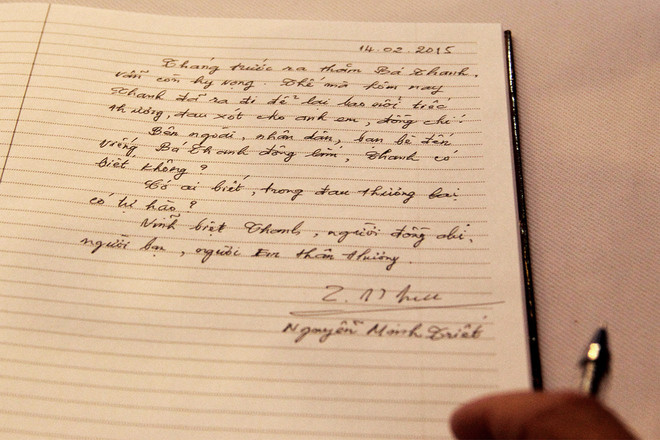 14.02.2015
Tháng trước ra thăm Bá Thanh,
vẫn còn hy vọng. Thế mà hôm nay
Thanh đã ra đi để lại bao nỗi
thương, đau xót cho anh em, đồng chí.
Bên ngoài, nhân dân, bạn bè đến
viếng Bá Thanh đông lắm, Thanh có
biết không?
Có ai biết, trong đau thương
có tự hào?
Vĩnh biệt Thanh, người đồng chí,
người bạn, người em thân thương.
Nguyễn Minh Triết